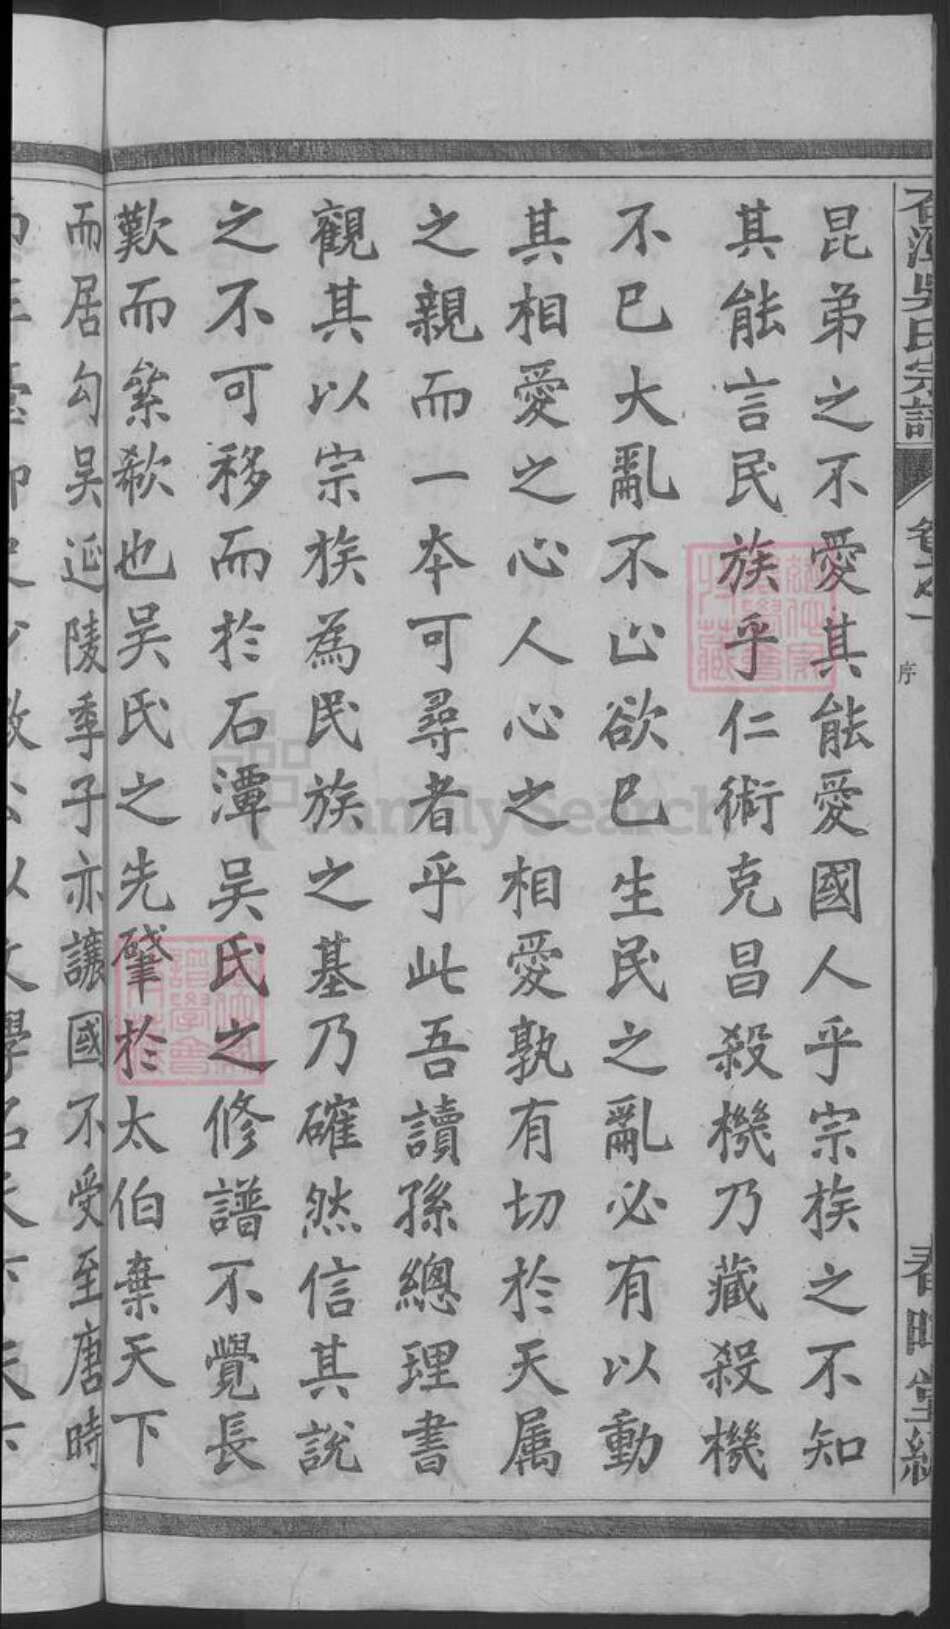 石潭吳氏宗譜
卷之一
序
春暉堂
昆弟之不愛其能愛國人乎宗族之不知
其能言民族乎仁術克昌殺機乃藏殺機
不已大亂不止欲已生民之亂必有以動
其相愛之心人心之相愛孰有切於天属
之親而一本可尋者乎此吾讀孫總理書
觀其以宗族為民族之基乃確然信其說
之不可移而於石潭吴氏之修譜不覺長
歎而縈欷也吴氏之先肇於太伯棄天下
而居勾吴延陵季子亦讓國不受至唐時
FamilySearch